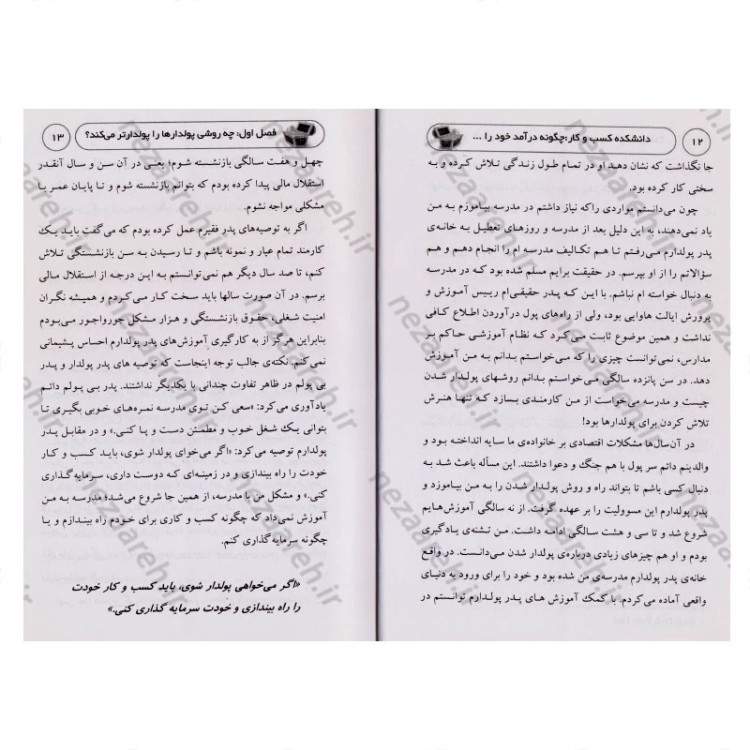 ۱۲
دانشکده کسب و کار؛چگونه درآمد خود را ...
جا نگذاشت که نشان دهد او در تمام طول زندگی تلاش کرده و به
سختی کار کرده بود.
چون می‌دانستم مواردی راکه نیاز داشتم در مدرسه بیاموزم به من
یاد نمی‌دهند، به این دلیل بعد از مدرسه و روزهای تعطیل به خانه‌ی
پدر پولدارم می‌رفتم تا هم تکالیف مدرسه ام را انجام دهم و هم
سؤالاتم را از او بپرسم. در حقیقت برایم مسلّم شده بود که در مدرسه
به دنبال خواسته ام نباشم. با این که پدر حقیقی‌ام رییس آموزش و
پرورش ایالت هاوایی بود، ولی از راه‌های پول درآوردن اطلاع کافی
نداشت و همین موضوع ثابت می‌کرد که نظام آموزشی حاکم بر
مدارس، نمی‌توانست چیزی را که می‌خواستم بدانم به من آموزش
دهد. در سن پانزده سالگی می‌خواستم بدانم روشهای پولدار شدن
چیست و مدرسه می‌خواست از من کارمندی بسازد که تنها هنرش
تلاش کردن برای پولدارها بود!
در آن‌سال‌ها مشکلات اقتصادی بر خانواده‌ی ما سایه انداخته بود و
والدینم دائم سر پول با هم جنگ و دعوا داشتند. این مسأله باعث شد به
دنبال کسی باشم تا بتواند راه و روش پولدار شدن را به من بیاموزد و
پدر پولدارم این مسوولیت را بر عهده گرفت. از نه سالگی آموزش‌هایم
شروع شد و تا سی و هشت سالگی ادامه داشت. من تشنه‌ی یادگیری
بودم و او هم چیزهای زیادی درباره‌ی پولدار شدن می‌دانست. در واقع
خانه‌ی پدر پولدارم مدرسه‌ی من شده بود و خود را برای ورود به دنیای
واقعی آماده می‌کردم. با کمک آموزش های پدر پولدارم توانستم در
فصل اول: چه روشی پولدارها را پولدارتر می‌کند؟
۱۳
چهل و هفت سالگی بازنشسته شوم؛ یعنی در آن سن و سال آنقدر
استقلال مالی پیدا کرده بودم که بتوانم بازنشسته شوم و تا پایان عمر با
مشکلی مواجه نشوم.
اگر به توصیه‌های پدر فقیرم عمل کرده بودم که می‌گفت باید یک
کارمند تمام عیار و نمونه باشم و تا رسیدن به سن بازنشستگی تلاش
کنم، تا صد سال دیگر هم نمی‌توانستم به این درجه از استقلال مالی
برسم. در آن صورت سالها باید سخت کار می‌کردم و همیشه نگران
امنیت شغلی، حقوق بازنشستگی و هزار مشکل جورواجور می‌بودم
بنابراین هرگز از به کارگیری آموزش‌های پدر پولدارم احساس پشیمانی
نمی‌کنم. نکته‌ی جالب توجه اینجاست که توصیه های پدر پولدار و پدر
بی پولم در ظاهر تفاوت چندانی با یکدیگر نداشتند. پدر بی پولم دائم
یادآوری می‌کرد: «سعی کن توی مدرسه نمره‌های خوبی بگیری تا
بتوانی یک شغل خوب و مطمئن دست و پا کنی.» و در مقابل پدر
پولدارم توصیه می‌کرد: «اگر می‌خوای پولدار شوی، باید کسب و کار
خودت را راه بیندازی و در زمینه‌ای که دوست داری، سرمایه گذاری
کنی.» و مشکل من با مدرسه، از همین جا شروع می‌شد؛ مدرسه به من
آموزش نمی‌داد که چگونه کسب و کاری برای خودم راه بیندازم و یا
چگونه سرمایه گذاری کنم.
«اگر می‌خواهی پولدار شوی، باید کسب و کار خودت
را راه بیندازی و خودت سرمایه گذاری کنی.»
nezaareh.ir